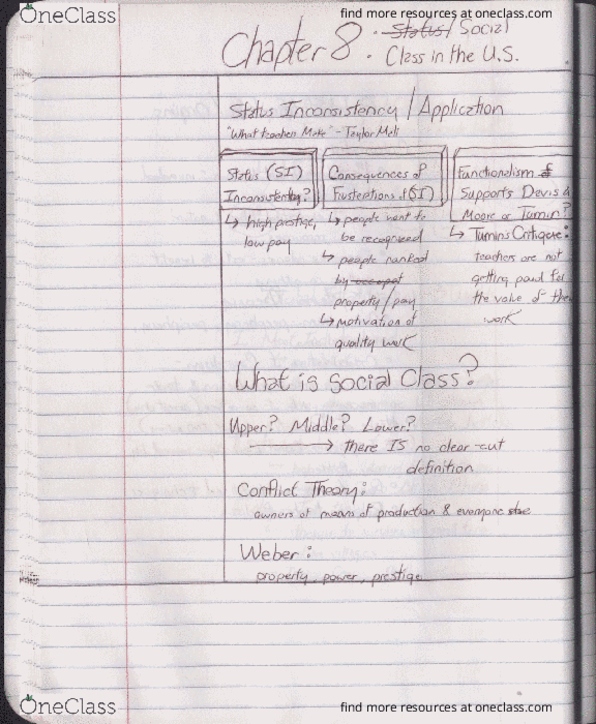 OneClass
find more resources at oneclass.com
Chapter 8 · Status/ Social
Class in the U.S.
Status Inconsistency / Application
"What teachers Make" - Taylor Mali
Status (SI)
Inconsistency?
↳ high prestige,
low pay
Consequences of
Frustrations of (SI)
↳ people want to
be recognized
↳ people ranked
by occupat
property/pay
↳ motivation of
quality work
Functionalism
Supports Davis &
Moore or Tumin?
↳ Tumin's Critique:
teachers are not
getting paid for
the value of the
work
What is Social Class?
Upper? Middle? Lower?
→ there IS no clear-cut
definition
Conflict Theory:
owners of means of production & everyone else
Weber:
property, power, prestige
OneClass
find more resources at oneclass.com